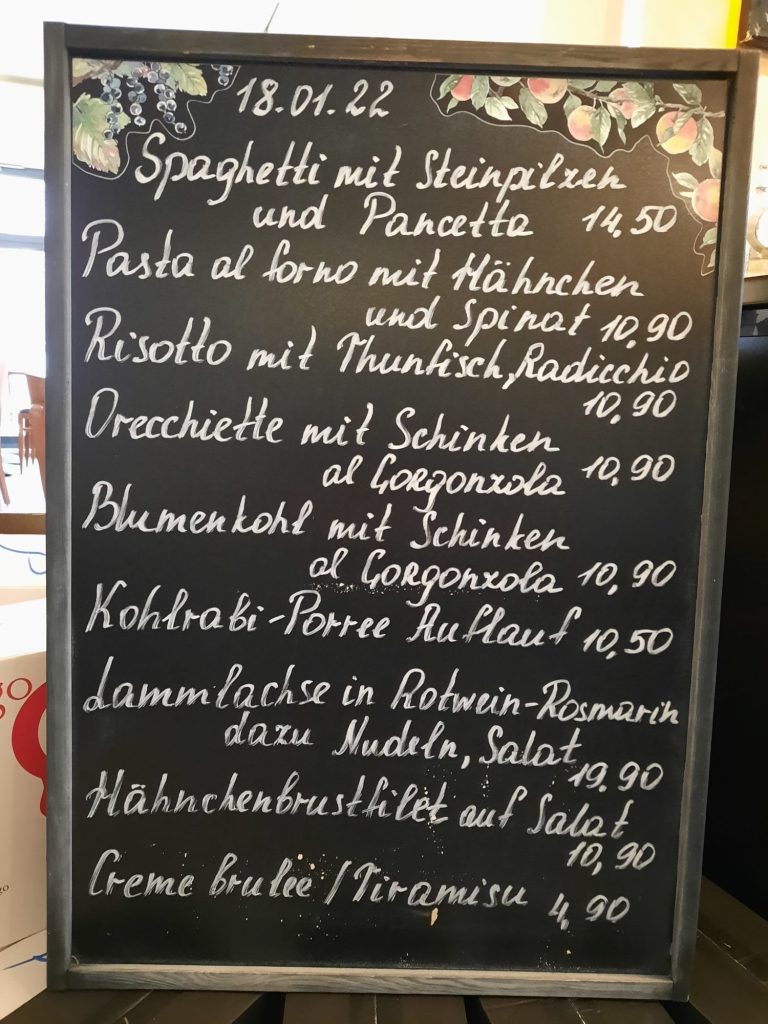 18.01.22
Spaghetti mit Steinpilzen
und Pancetta 14,50
Pasta al forno mit Hähnchen
und Spinat 10,90
Risotto mit Thunfisch, Radicchio
10,90
Orecchiette mit Schinken
al Gorgonzola 10,90
Blumenkohl mit Schinken
al Gorgonzola 10,90
Kohlrabi-Porree Auflauf 10,50
Lammlachse in Rotwein-Rosmarin
dazu Nudeln, Salat
19,90
Hähnchenbrustfilet auf Salat
10,90
Creme brulee / Tiramisu 4,90
go